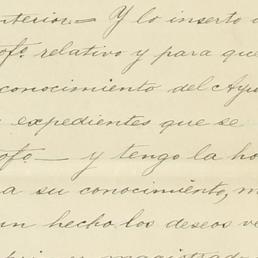 nterior = Y lo inserto
ofo. relativo y para que
conocimiento del Ayu
expedientes que se
ofo — y tengo la ho
a su conocimiento, m
un hecho los deseos ve
y magistrado